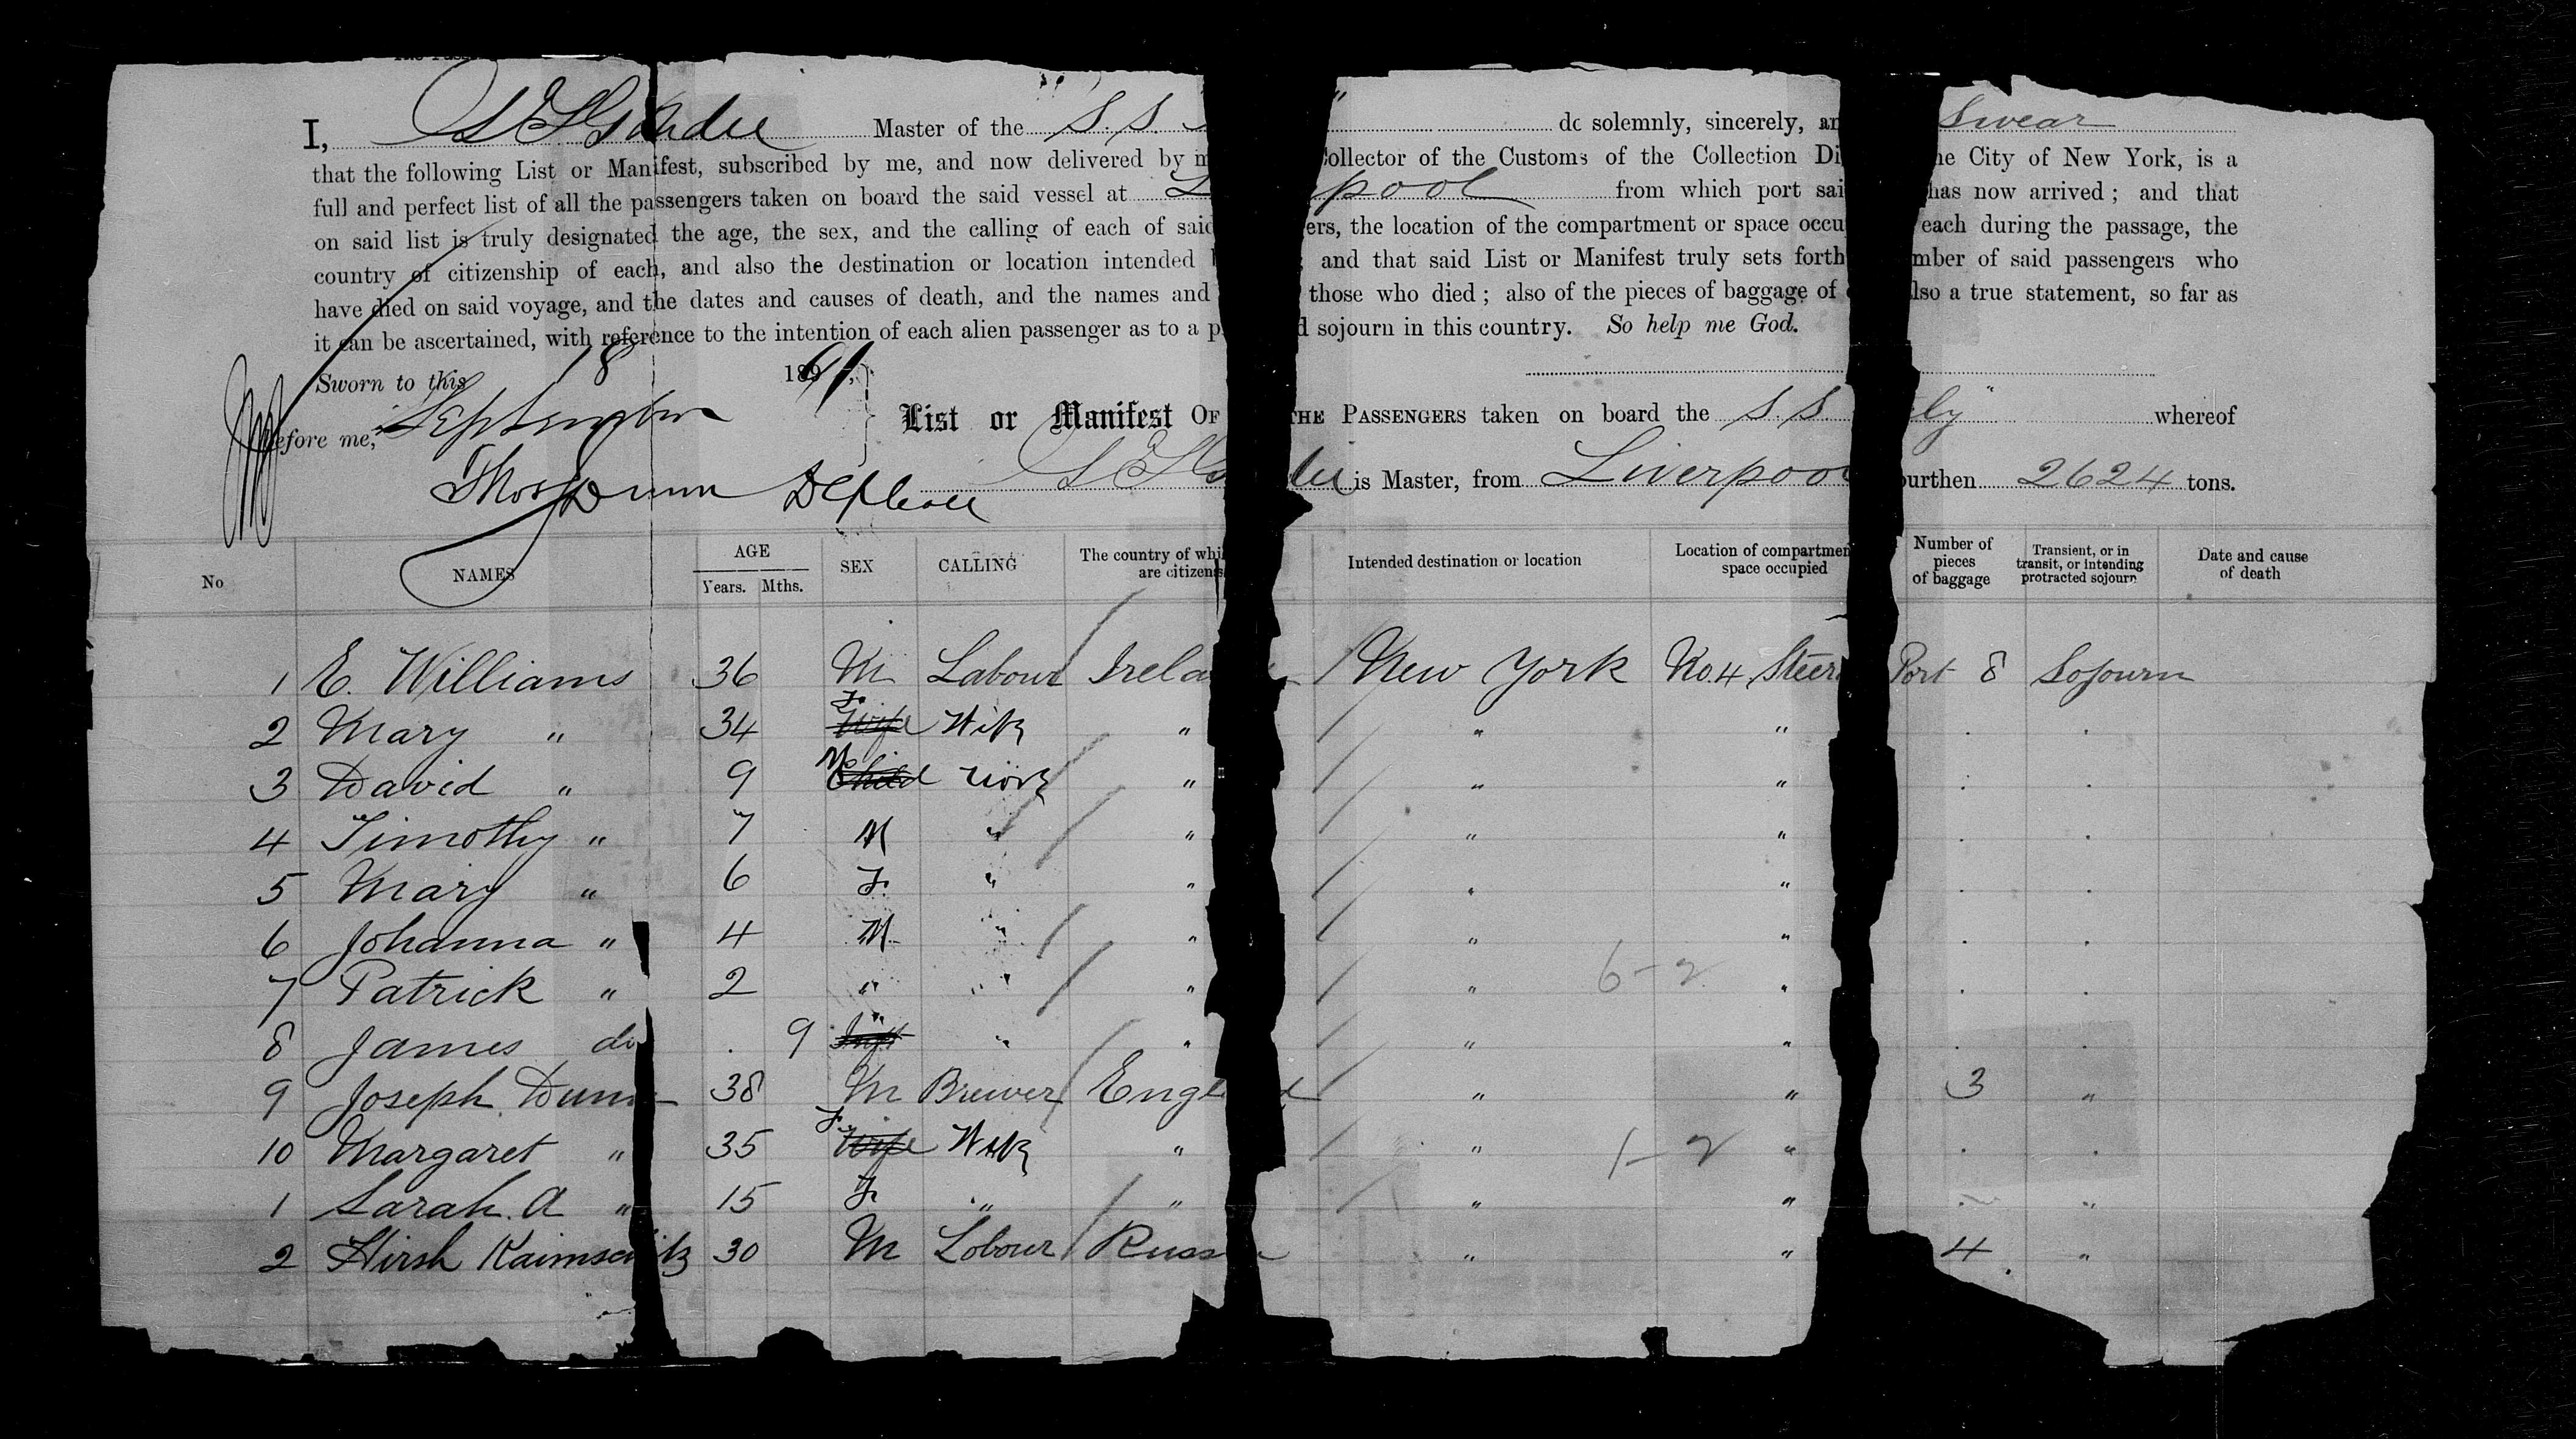 I, Master of the S. S. " do solemnly, sincerely, an Swear
that the following List or Manifest, subscribed by me, and now delivered by m Collector of the Customs of the Collection Di he City of New York, is a
full and perfect list of all the passengers taken on board the said vessel at L pool from which port sai has now arrived; and that
on said list is truly designated the age, the sex, and the calling of each of said ers, the location of the compartment or space occu each during the passage, the
country of citizenship of each, and also the destination or location intended ; and that said List or Manifest truly sets forth mber of said passengers who
have died on said voyage, and the dates and causes of death, and the names and those who died; also of the pieces of baggage of lso a true statement, so far as
it can be ascertained, with reference to the intention of each alien passenger as to a p d sojourn in this country. So help me God.
Sworn to this 18 1891,
September
before me,
List or Manifest OF THE PASSENGERS taken on board the S. S. ly" whereof
Thos Dunn is Master, from Liverpool burthen 2624 tons.
No NAMES AGE Years. Mths. SEX CALLING The country of whi are citizens Intended destination or location Location of compartmen space occupied Number of pieces of baggage Transient, or in transit, or intending protracted sojourn Date and cause of death
1 E. Williams 36 M Labour Irela New York No. 4 Steer Port 8 Sojourn
2 Mary " 34 F. Wife Wife " " "
3 David " 9 M Child " " "
4 Timothy " 7 M " " " "
5 Mary " 6 F. " " " "
6 Johanna " 4 M " " " "
7 Patrick " 2 " " " " 6-2 "
8 James do 9 " Inft " " " "
9 Joseph Dunn 38 M Brewer England " " 3 "
10 Margaret " 35 F. Wife Wife " " 1-2 "
1 Sarah. A " 15 F. " " " " "
2 Hirsh 30 M Lobour Russ " " 4 "